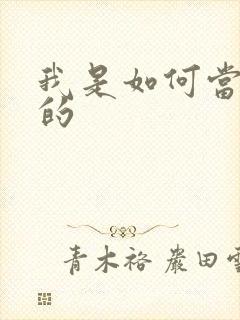 我是如何當
的
青木裕 巖田雪